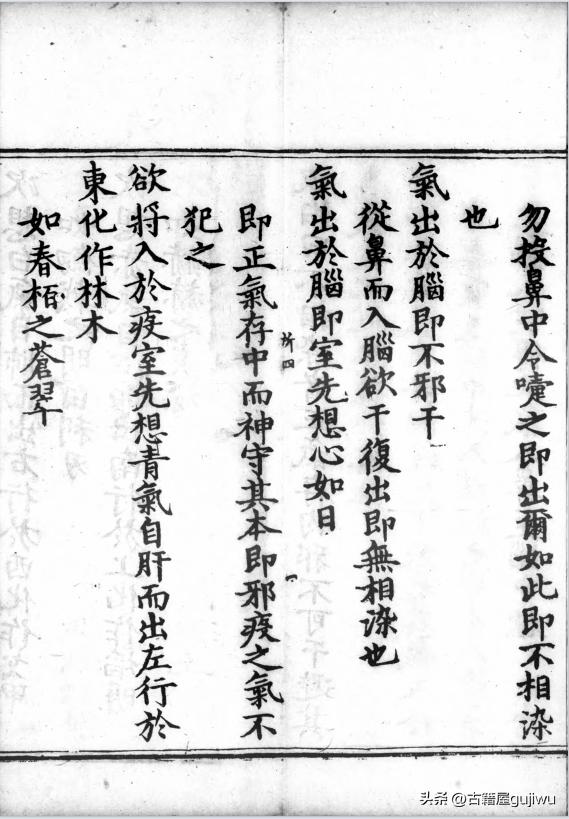 勿投鼻中令嚏之即出爾如此即不相染
也
氣出於腦即不邪干
從鼻而入腦欲干復出即無相染也
氣出於腦即室先想心如日
即正氣存中而神守其本即邪疫之氣不
犯之
欲將入於疫室先想青氣自肝而出左行於
東化作林木
如春栢之蒼翠
头条 @古籍屋gujiwu